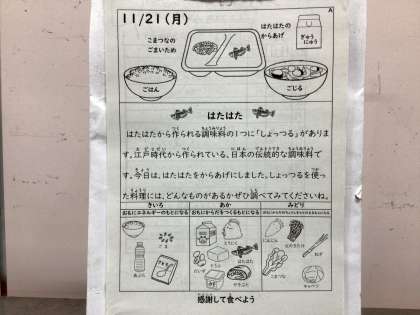 11/21(月)
A
こまつなの
ごまいため
はたはたの
からあげ
ぎゅう
にゅう
ごはん
ごじる
はたはた
はたはたから作られる調味料の1つに「しょっつる」がありま
す。江戸時代から作られている、日本の伝統的な調味料で
す。今日は、はたはたをからあげにしました。しょっつるを使っ
た料理には、どんなものがあるかぜひ調べてみてくださいね。
きいろ
あか
みどり
おもにエネルギーのもとになる
おもにからだをつくるもとになる
ごま
あぶら
とりにく
だいず
とうふ
はたはた
にんじん
ねぎ
こまつな
キャベツ
感謝して食べよう